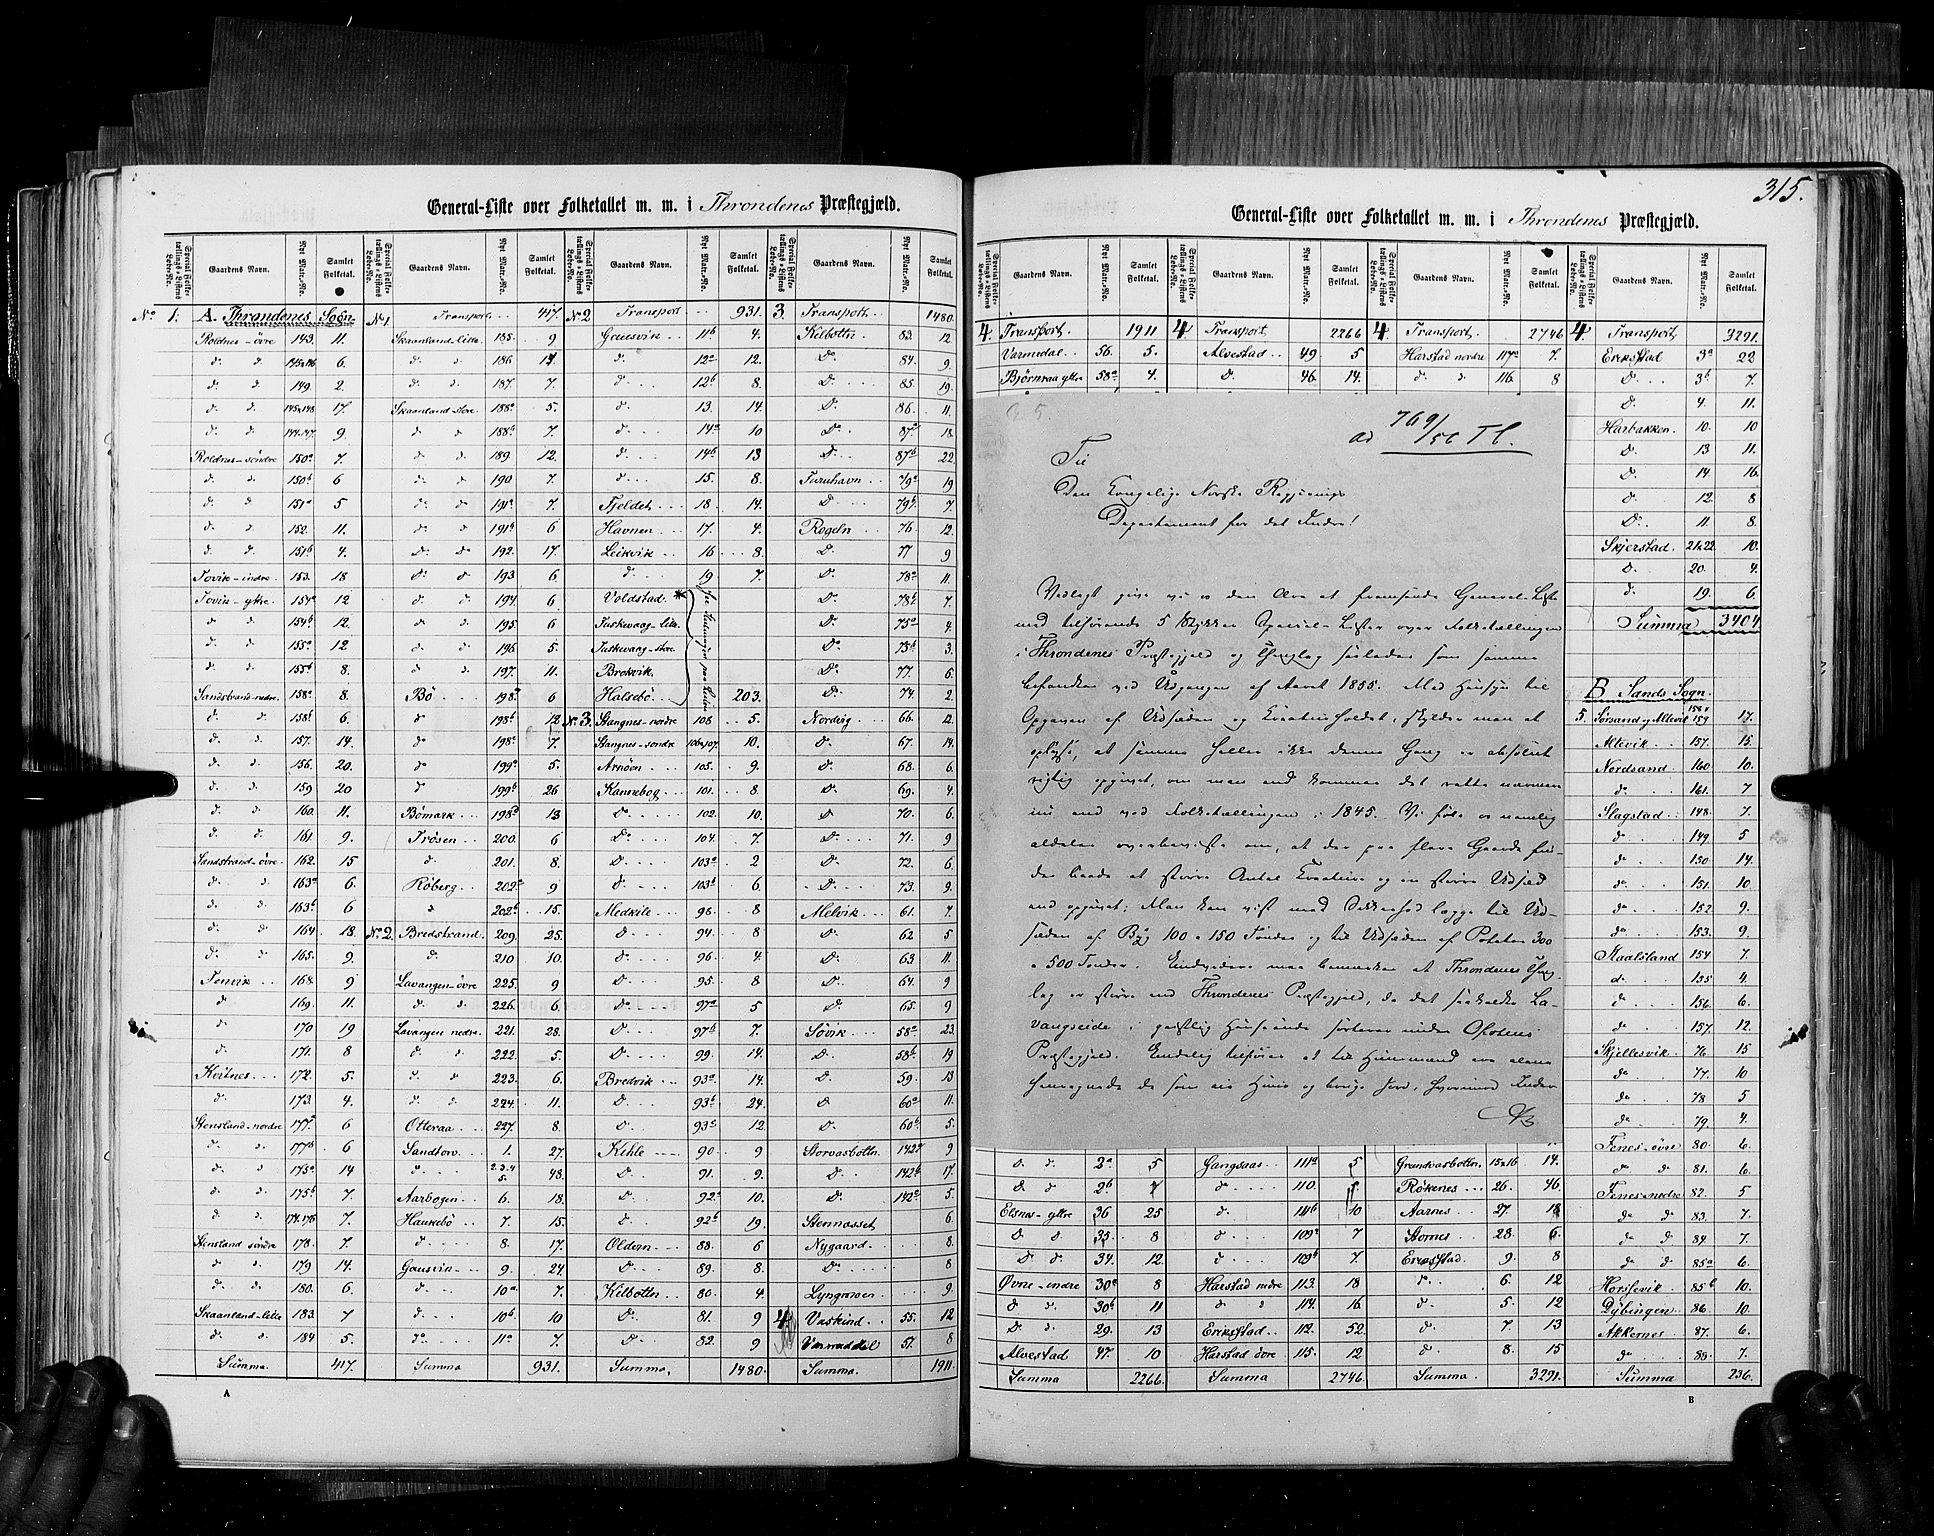 General-Liste over Folketallet m. m. i Throndenes Præstegjæld.
Special Folketællings-Listens Løbe-No. Gaardens Navn. Nyt Matr.-No. Samlet Folketal.
No 1. A. Throndenes Sogn
Roldnes-övre 143. 11.
d. d. 145&146 6.
d. d. 149. 2.
d. d. 145&148 17.
d. d. 144.147. 9.
Roldnes-söndre 150a 7.
d. d. 150b 6
d. d. 151a 5
d. d. 152. 11.
d. d. 151b 4.
Tovik-indre 153. 18
Tovik-yttre 154a 12
d. d. 154b 12.
d. d. 155a 12
d. d. 155b 8.
Sandstrand-nedre 158a 8.
d. d. 158b 6.
d. d. 157. 14.
d. d. 156. 20.
d. d. 159 20
d. d. 160. 11.
d. d. 161. 9.
Sandstrand-övre 162. 15
d. d. 163a 6.
d. d. 163b 6
d. d. 164 18.
d. d. 165. 9.
Tenvik 168. 9
d. 169. 11.
d. 170 19
d. 171. 8
Kvitnes 172. 5.
d. 173. 4.
Stensland-nordre 177a 6
d. d. 177b 6.
d. d. 173a 14
d. d. 175b 7.
d. d. 174.176 7.
Stensland söndre 178. 7.
d. d. 179 14.
d. d. 180. 6.
Skaanland-lille 183. 7
d. d. 184 5.
Summa. 417.
No 1 Transport 417.
Skaanland-lille 185. 9
d. d. 186 14
d. d. 187. 7.
Skaanland-store 188a 5.
d. d. 188b 7.
d. d. 189. 12.
d. d. 190 7.
d. d. 191a 7.
d. d. 191b 6
d. d. 192. 17.
d. d. 193 6
d. d. 194. 6
d. d. 195. 6
d. d. 196 5.
d. d. 197. 11.
Bö 198a 6
d. 198b 12.
d. 198c 7.
d. 199a 5.
d. 199b 26
Bömark 198d 13
Trösen 200. 6
d. 201. 8.
Röberg 202a 9
d. 202b 15.
No 2. Bredstrand 209. 25.
d. 210 10.
Lavangen-övre 225. 9
d. d. 226. 6
Lavangen nedre 221. 28.
d. d. 222. 5.
d. d. 223. 6.
d. d. 224. 11.
Otteraa 227. 8.
Sandtorv 1. 27.
d. 2.3.4 5. 48.
Aarbogen 6. 18.
Haukebö 7. 15.
d. 8. 17.
Gausvik 9. 24
d. 10a 7.
d. 10b 10
d. 11a 7.
Summa 931.
No 2 Transport 931.
Gausvik 11b 4.
d. 12a 12.
d. 12b 8.
d. 13. 14.
d. 14a 10
d. 14b 13
d. 15. 8.
Fjeldet 18. 14.
Havnen 17. 4.
Leikvik 16 8.
d. 19 7.
Voldstad
Fuskevaag-lille
Fuskevaag-store
Brokvik
Halsebö 203.
No 3. Stangnes-nordre 108 5.
Stangnes-söndre 106&107. 10.
Arnöen 105. 9.
Kannebog 101. 8
D. 102. 10.
D. 104. 7.
D. 103a 2
D. 103b 6.
Medkile 93. 8
D. 94. 8
D. 96. 4
D. 95. 8
D. 97a 5
D. 97b 7
D. 99. 14.
Bredvik 93a 14.
D. 93b 24.
D. 93c 12.
Kihle 90. 9
D. 91. 9.
D. 92a 10.
D. 92b 19.
Oldern 88. 6
D. 89. 8.
Kilbotn 80. 4.
D. 81. 9
D. 82. 9
Summa, 1480.
3. Transport 1480.
Kilbotn 83. 12
D. 84. 9.
D. 85. 19.
D. 86. 11.
D. 87a 18.
D. 87b 22.
Furuhavn 79a 19
D. 79b 7.
Rogeln 76. 12.
D. 77 9
D. 78a 11.
D. 78b 7.
D. 75a 4.
D. 75b 3.
D. 77. 6.
D. 74. 2.
Nordvig 66. 12.
D. 67. 14.
D. 68. 6.
D. 69. 4.
D. 70. 6.
D. 71. 9
D. 72. 6.
D. 73. 9.
Melvik 61. 7.
D. 62 5
D. 63 11.
D. 64. 9
D. 65. 9
Sövik 58a 23.
D. 58b 19
D. 59. 13
D. 60a 11.
D. 60b 5.
Storvasbotn 142a 9
D. 142b 17.
D. 140a 5.
Stennasset 6.
Nygaard 8.
D. 8
Lyngmoen 9.
4. Vaskind 55. 12
Varmeddal 57. 8
Summa. 1911.
A
315.
General-Liste over Folketallet m. m. i Throndenes Præstegjæld.
4. Transport. 1911
Varmedal 56. 5.
Björnraa yttre 58a 4.
D. d. 2a 5
D. d. 2b 7
Elsnes-yttre 36 25
D. d. 35. 8
D. d. 34. 12.
Övre-indre 30a 8
D. d. 30b 11
D. d. 29. 13
Alvestad 47. 10
Summa 2266.
4 Transport 2266
Alvestad 49. 5
D. 46. 14.
Gangsaas 111a 5
d. 110.
d. 111b 10
d. 109a 7
d. 109b 7.
Harstad nedre 113. 18
d. d. 114. 16.
Erikstad 112. 52.
Harstad övre 115. 12
Summa 2746.
4 Transport 2746
Harstad nordre 117a 7.
d. d. 116. 8
Grundvasbotn 15&16 14.
Rökenes 26. 46.
Aarnes 27. 18
Stornes 28. 6.
Erikstad 9. 8
d. 6. 12
d. 5. 12
d. 7. 13
d. 8. 15
Summa 3291.
4. Transport 3291.
Erikstad 3a 22
D. 3b 7.
D. 4. 11.
Harbakken 10. 10
D. 13 11.
D. 14 16.
D. 12. 8
D. 11. 8.
Skjerstad 21&22. 10.
D. 20. 4.
d. 19. 6.
Summa 3404
B Sands Sogn.
5. Sörsand og Altevik 158& 159 17.
Altevik 157. 15.
Nordsand 160 10.
d. 161. 7
Slagstad 148. 7.
do 149 5
do 150 14.
do 151. 10
do 152 9.
do 153. 9
Kaalsland 154 7.
d. 155 4.
do 156. 6.
do 157. 12
Skjellesvik 76. 15
do 77. 10
do 78 5
do 79. 4.
Fenes-övre 80. 6.
do d. 81. 6.
Fenes-nedre 82. 5
do d. 83. 7.
do d. 84. 7.
do d. 85a 6.
Horsevik 85b 10.
Dybingen 86. 10.
Akkernes 87. 6.
do 88. 7.
Summa 236.
B
ad 769/56 Tl.
Til
Den Kongelige Norske Regjerings
Departement for det Indre!
Vedlagt give vi os den Ære at fremsende General-Liste
med tilhørende 5 Stykker Special-Lister over Folketællingen
i Throndenes Præstegjeld og Thinglag saaledes som samme
befandtes ved Udgangen af Aaret 1855. Med Hensyn til
Opgaven af Udsæden og Kreaturholdet, skylder man at
oplyse, at samme heller ikke denne Gang er absolut
rigtig opgivet, om man end kommer det rette nærmere
nu end ved Folketællingen i 1845. Vi föle os nemlig
aldeles overbeviste om, at der paa flere Gaarde fin-
des baade et större Antal Kreaturer og en större Udsæd
end opgivet; Man kan vist med Sikkerhed lægge til Ud-
sæden af Byg 100 a 150 Tönder og til Udsæden af Poteter 300
a 500 Tönder. Endvidere maa bemærkes at Throndenes Thing-
lag er större end Throndenes Præstegjeld, da det saakaldte La-
vangseide i geistlig Henseende sorterer under Ofotens
Præstegjeld. Endelig tilföies at til Huusmænd ere alene
henregnede de som eie Huus og bruge Jord, hvorimod Inder